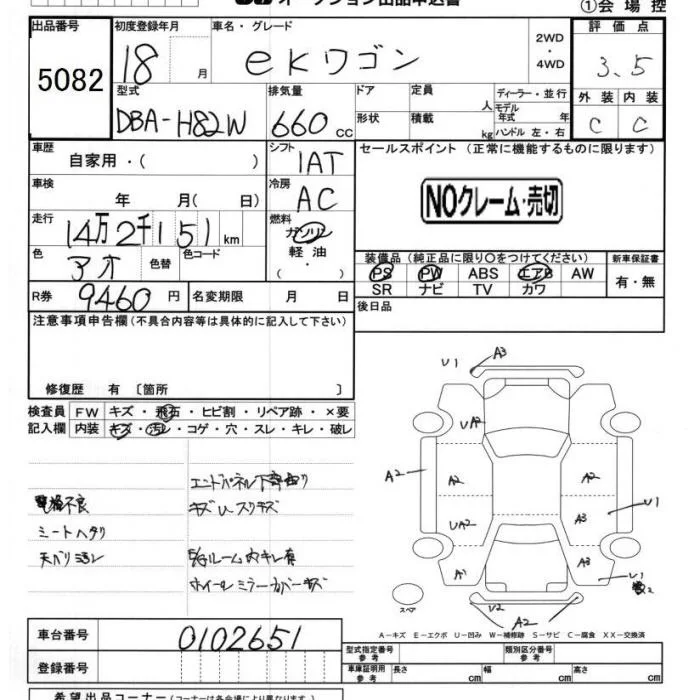 ①会場控
出品番号 5082
初度登録年月 18 月
車名・グレード eKワゴン
2WD
・
4WD
評価点 3.5
型式 DBA-H82W
排気量 660 CC
ドア
形状
定員 人
積載 kg
ディーラー・並行
モデル
年式 年
ハンドル 左・右
外装 内装
C C
車歴 自家用・( )
シフト IAT
セールスポイント (正常に機能するものに限ります)
車検 年 月( 日)
冷房 AC
NOクレーム・売切
走行 14万2千151 km
燃料 ガソリン
軽油
( ・ )
色 アオ 色替 色コード
装備品 (純正品に限り○をつけてください)
新車保証書
PS PW ABS エアB AW
SR ナビ TV カワ
有・無
R券 9460 円 名変期限 月 日
後日品
注意事項申告欄(不具合内容等は具体的に記入して下さい)
修復歴 有 〔箇所 〕
検査員 FW キズ・飛石・ヒビ割・リペア跡・×要
記入欄 内装 キズ・汚レ・コゲ・穴・スレ・キレ・破レ
シートヘタリ
U1 A3
UA2
A2 A2 A2
UA2 A3 U1
A1 A3 U1
U2 A2
スペア
A-キズ E-エクボ U-凹み W-補修跡 S-サビ C-腐食 XX-交換済
車台番号 0102651
登録番号
型式指定番号 参考
類別区分番号 参考
車庫証明用 参考 長さ cm 幅 cm 高さ cm
希望出品コーナー(コーナーは各会場により異なります)